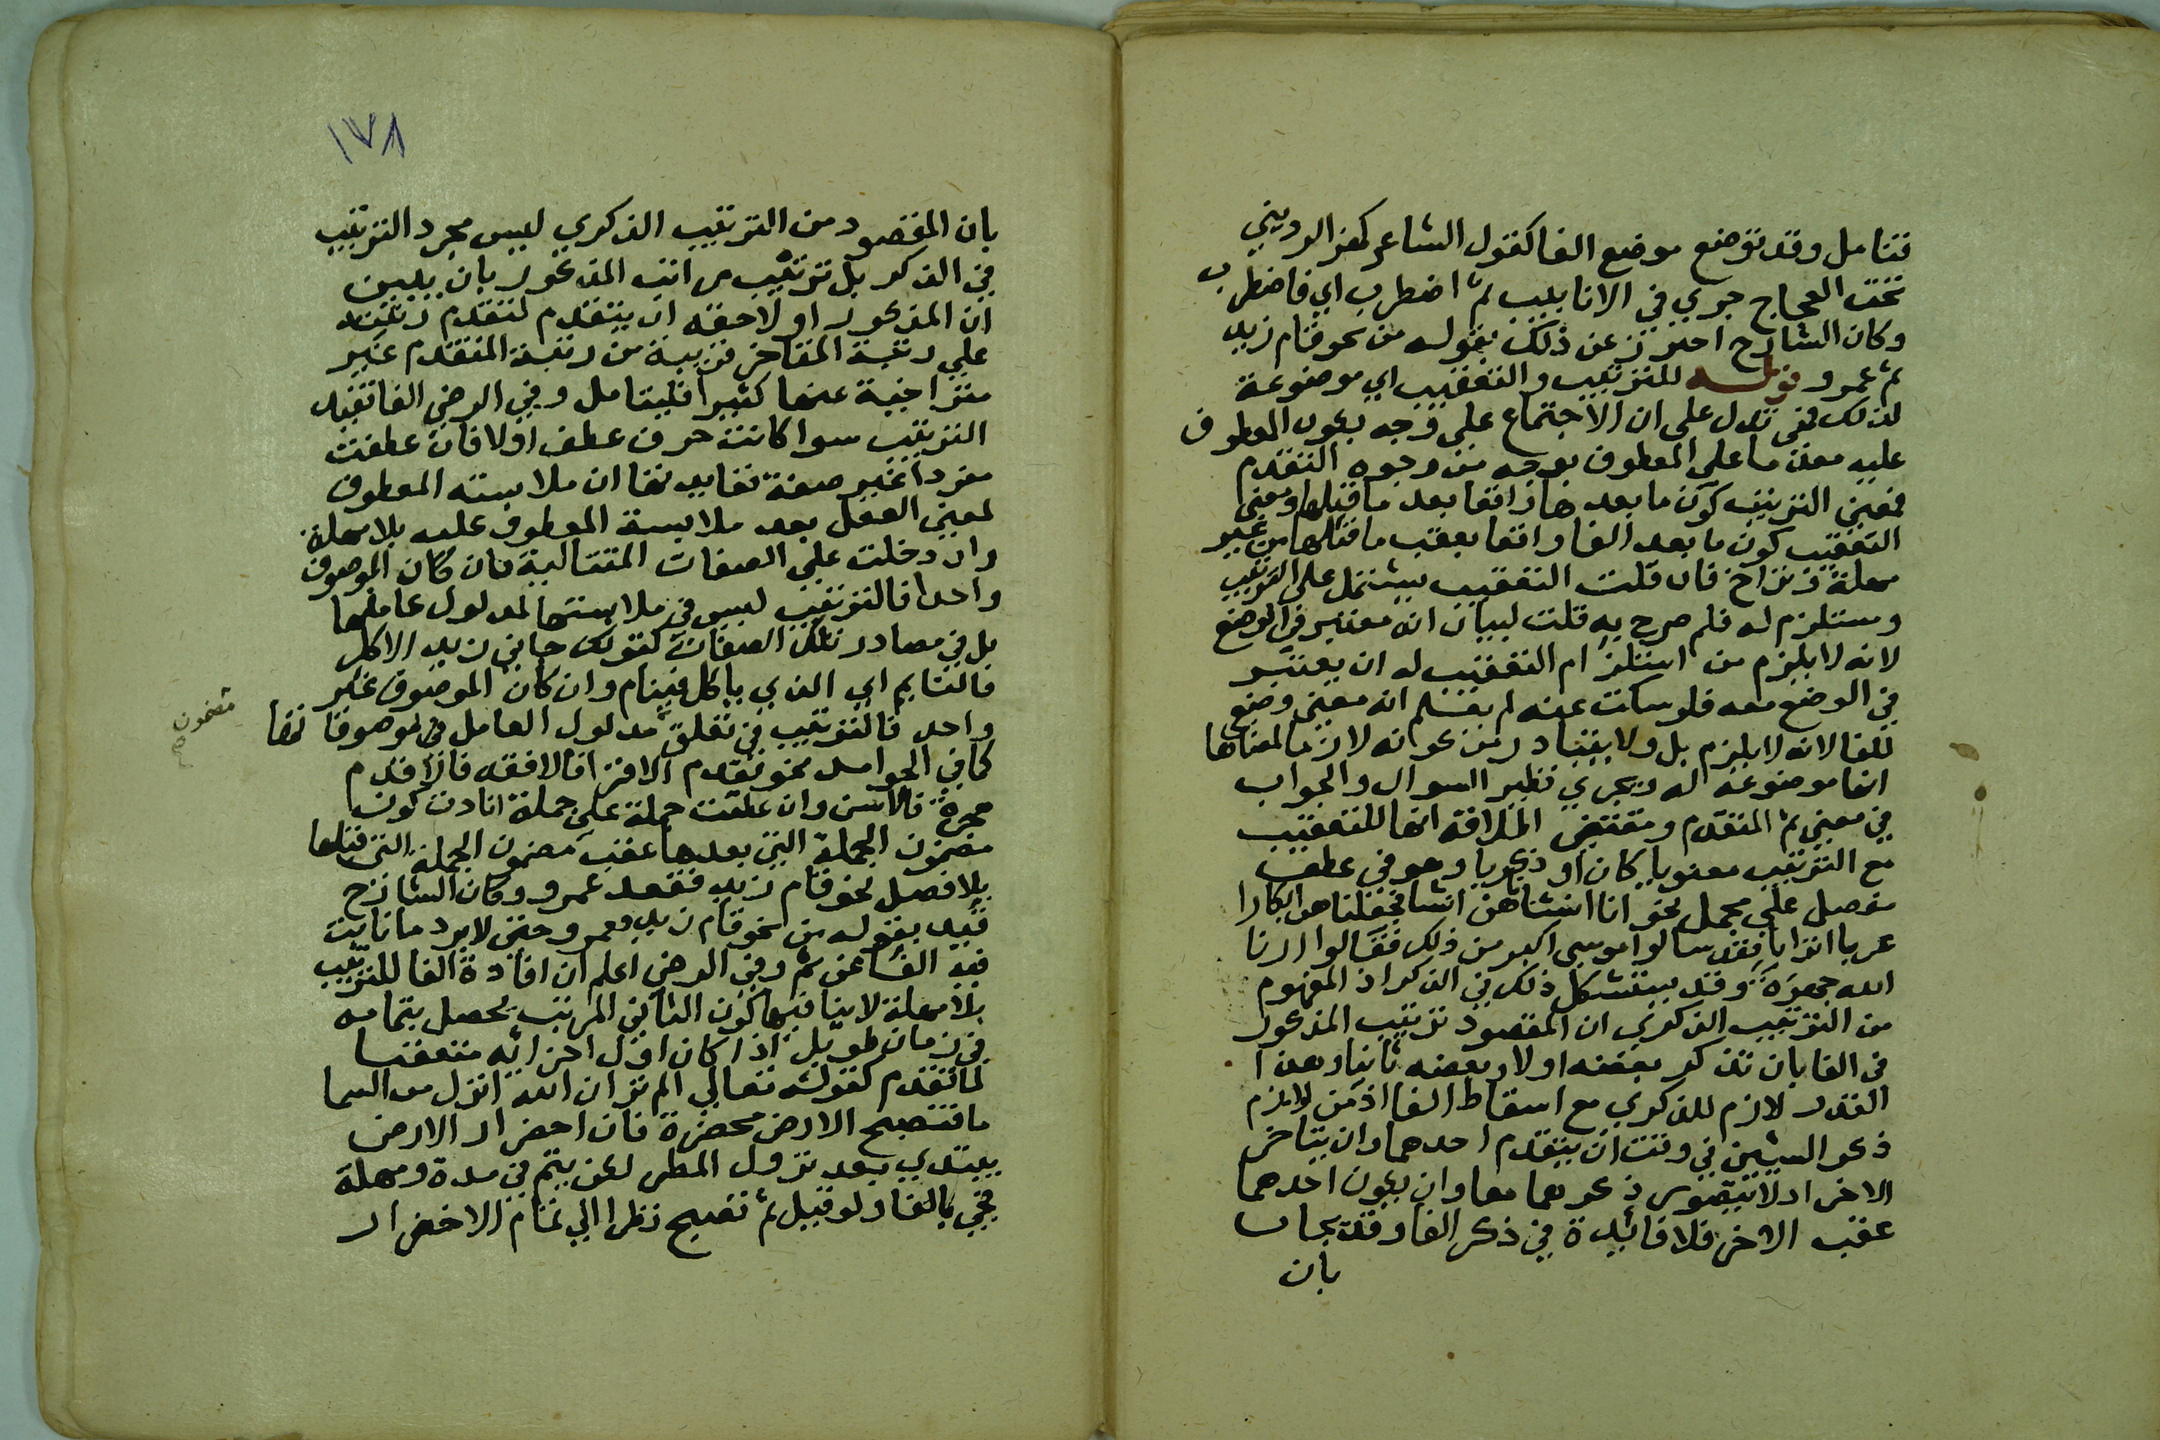 فتامل وقد توضع موضع الفا كقول الشاعر كهز الرديني
تحت العجاج جري في الانابيب ثم اضطرب اي فاضطرب
وكان الشارح احترز عن ذلك بقوله من نحو قام زيد
ثم عمرو قوله للترتيب والتعقيب اي موضوعة
لذلك فهي تدل على ان الاجتماع على وجه يكون المعطوف
عليه مقدما على المعطوف بوجه من وجوه التقدم
فمعنى الترتيب كون ما بعدها واقعا بعد ما قبلها ومعنى
التعقيب كون ما بعد الفا واقعا بعقب ما قبلها من غير
مهلة وتراخ فان قلت التعقيب يشتمل على الترتيب
ومستلزم له فلم صرح به قلت لبيان انه معتبر في الوضع
لانه لا يلزم من استلزام التعقيب له ان يعتبر
في الوضع معه فلو سكت عنه لم يعلم انه معنى وضع
للفا لانه لا يلزم بل ولا يتبادر من كونه لازما لمعناها
انها موضوعة له ويجري نظير السوال والجواب
في معنى ثم المتقدم ومقتضى اطلاقه انها للتعقيب
مع الترتيب معنويا كان او ذكريا وهو في عطف
مفصل على مجمل نحو انا انشاناهن انشا فجعلناهن ابكارا
عربا اترابا فقد سالوا موسى اكبر من ذلك فقالوا ارنا
الله جهرة وقد يستشكل ذلك في الذكر اذ المفهوم
من الترتيب الذكري ان المقصود ترتيب المذكور
في الفا بان تذكر بعضه اولا وبعضه ثانيا وهذا
القدر لازم للذكري مع اسقاط الفا اذ من لازم
ذكر الشيئين في وقت ان يتقدم احدهما وان يتاخر
الاخر اذ لا يتصور ذكرهما معا وان يكون احدهما
عقب الاخر فلا فائدة في ذكر الفا وقد يجاب
بان
١٧٨
بان المقصود من الترتيب الذكري ليس مجرد الترتيب
في الذكر بل ترتيب مراتب المذكور بان يبين
ان المذكور اولا حقه ان يتقدم لتقدم رتبته
على رتبة المتاخر قريبة من رتبة المتقدم غير
متراخية عنها كثيرا فليتامل وفي الرضي الفا تفيد
الترتيب سوا كانت حرف عطف اولا فان عطفت
مفردا غير صفة تفايد نفا ان ملابسته المعطوف
لمعنى الفعل بعد ملابسة المعطوف عليه بلا مهلة
وان دخلت على الصفات المتتالية فان كان الموصوف
واحدا فالترتيب ليس في ملابستها لمدلول عاملها
بل في مصادر تلك الصفات كقولك جاني زيد الاكل
فالنايم اي الذي ياكل فينام وان كان الموصوف غير
واحد فالترتيب في تعلق مدلول العامل في موصوفا تها
كما في الجوامد نحو تقدم الاقرا فالافقه فالاقدم
هجرة فالاسن وان عطفت جملة على جملة افادت كون
مضمون
مضمون الجملة التي بعدها عقب مضمون الجملة التي قبلها
بلا فصل نحو قام زيد فقعد عمرو وكان الشارح
قيد بقوله من نحو قام زيد وعمرو حتى لا يرد ما نابت
فيه الفا عن ثم وفي الرضي اعلم ان افادة الفا للترتيب
بلا مهلة لا ينافيها كون الثاني المرتب يحصل بتمامه
في زمان طويل اذا كان اول اجزائه متعقبا
لما تقدم كقوله تعالى الم تر ان الله انزل من السما
ما فتصبح الارض مخضرة فان اخضرار الارض
يبتدي بعد نزول المطر لكن يتم في مدة ومهلة
فجي بالفا ولو قيل ثم تصبح نظرا الى تمام الاخضرار